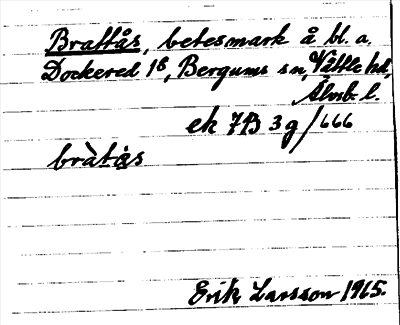 Brattås, betesmark å bl. a.
Dockered 1⁸, Bergums sn, Vättle hd,
Älvsb. l.
ek 7B 3g/666
bràtås
Erik Larsson 1965.